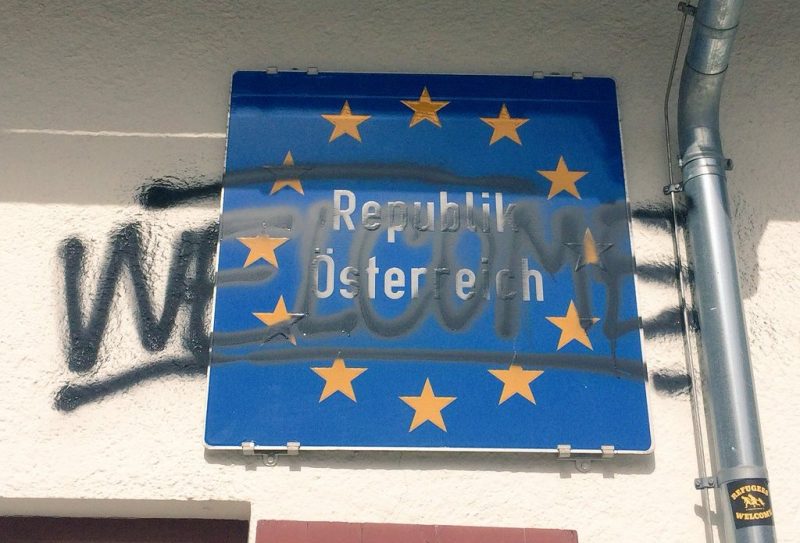 Republik
Österreich
WELCOME
REFUGEES
WELCOME